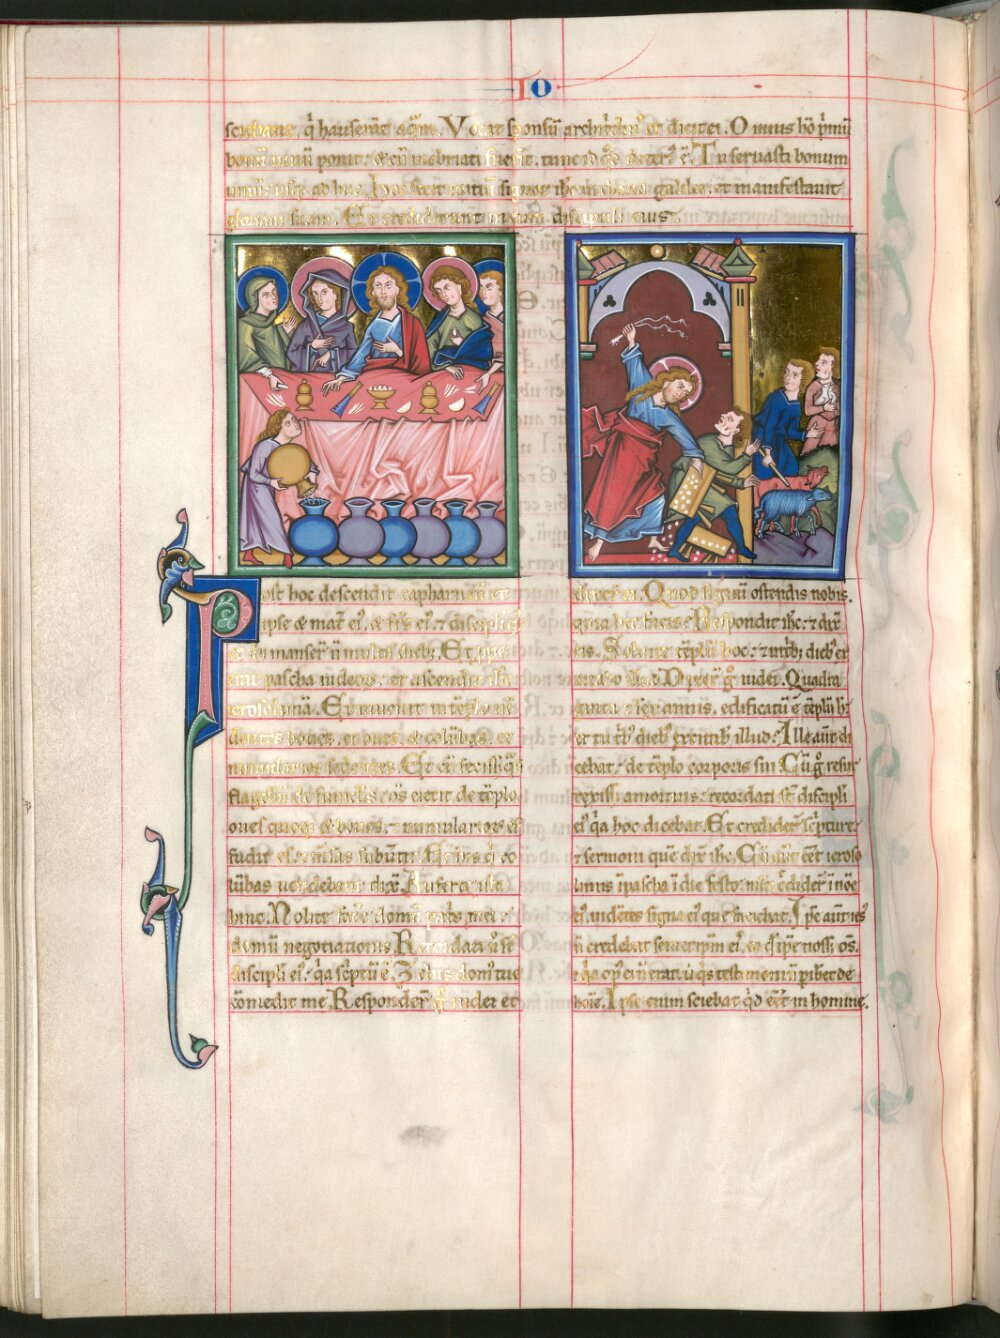 IO
sciebant. q̇ hauserāt aq̄m. Vocat sponsū architriclin᷒ et dicit ei. Omnis hō p̄mū
bonū uinū ponit. & cū inebriati fuerīt. tunc id qđ deteri᷒ ē. Tu seruasti bonum
uinū usq; ad huc. Hoc fecit initiū signoꝝ ihc in chana galilee. et manifestauit
gloriam suam. Et crediderunt in eum discipuli eius.
Post hoc descendit capharnaū
ipse & mat̄ ei᷒. & fr̄s ei᷒. & discipuli
manser̄ ñ multis dieb;. Et
erat pascha iudeoꝝ. et ascendit
ierosolimā. Et inuenit in templo uē
dentes boues. et oues. & colūbas. et
numularios sedētes. Et cū fecisset q̄si
flagellū de funiclis. oēs eiecit de tēplo.
oues quoq; & boues. numularioꝝ ef
fudit es. & mēsas subūtit. Et his q̇ co
lūbas uendebant dixit. Auferte ista
hinc. Nolite facere domū patris mei
domū negotiationis. Recordati u᷒ st̄
discipli ei᷒. q̇a sc̄ptū ē. Zelus dom᷒ tue
cōmedit me. Responder̄ g̊ iudei et
dixer̄ ei. Quod signū ostendis nobis.
quia hec facis. Respondit ihc. & dix̄
eis. Soluite tēplū hoc. & in trib; dieb᷒ ex
citabo illud. Dixer̄ g̊ iudei. Quadra
ginta & sex annis. edificatū ē tēplū h̊.
et tu trib᷒ dieb᷒ excitab᷒ illud. Ille aūt di
cebat. de tēplo corporis sui. Cū g̊ resur
rexiss; a mortuis. recordati st̄ discipli
ei᷒ q̇a hoc dicebat. Et credider̄ sc̄pture.
& sermoni quē dix̄ ihc. Cū aūt eēt ieroso
limis ī pascha ī die festo. mlti credider̄ ī noīe
ei᷒. uidētes signa ei᷒ que faciebat. Ipse aūt ihs
ñ credebat semetip̄m eis. eo qđ ip̄e nosset oēs.
& q̇a op᷒ ei ñ erat. ut q̇s testimoniū phibet de
hoīe. Ipse enim sciebat q̇d eēt in homine.